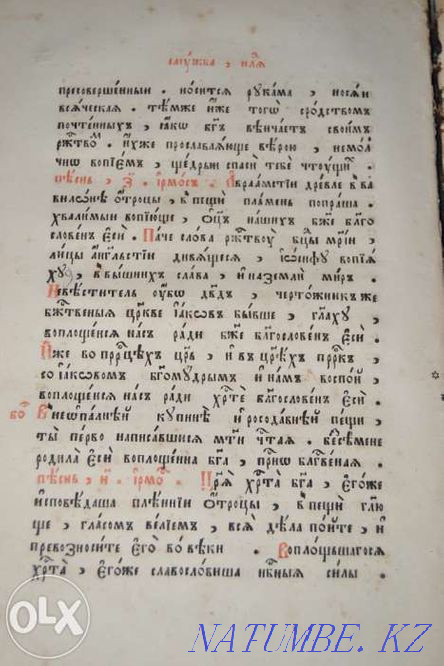 слꙋ́жба , и҆ілїѧ̀
пресовершенныи . но́ситсѧ рꙋка́ма , носѧ́и
всѧ́ческаѧ . тѣ́мже и҆́же того̀ сро́дствомъ
почте́нныхъ , ꙗ҆́кѡ бг҃ъ вѣнча́етъ свои́мъ
ржⷭ҇тво́мъ . и҆́хже прославлѧ́юще вѣ́рою , немо́л
чнѡ вопїе́мъ , ще́дрыи спасѝ тебѐ чтꙋ́щиⷯ .
пѣ́снь , з҃ . і҆рмо́съ . А҆враа́мстїи дре́вле в̾ва
вилѡ́нѣ ѻ҆́троцы , в̾пещѝ пла́мень попра́ша .
хвали́мыи вопїю́ще , ѻ҆ц҃ъ на́шихъ бж҃е бл҃го
слове́нъ є҆сѝ . Па́че сло́ва ржⷭ҇твꙋ̀ бц҃ы мр҃їи ,
ли́цы а҆́нг҃льстїи дивѧ́щесѧ , і҆ѡ́сифꙋ вопїѧ́
хꙋ , в̾вы́шнихъ сла́ва , и҆ наземлѝ ми́ръ .
Невѣсти́тель ᲂу҆́бѡ дв҃дъ , черто́жникъже
бж҃твеныѧ цр҃кве і҆а́кѡвъ бы́вше , гл҃ахꙋ ,
воплоще́йсѧ на́съ ра́ди бж҃е благослове́нъ є҆сѝ .
И҆́же во прⷪ҇рцѣхъ цр҃ь , и҆ в̾ цр҃ѣхъ прⷪ҇ркъ ,
со і҆а́кѡвомъ бг҃омꙋ́дрымъ и҆ на́мъ воспо́й ,
воплоще́йсѧ на́съ ра́ди хрⷭ҇тѐ благослове́нъ є҆сѝ .
боⷢ҇ В̾неѡ҆па́лнѣй кꙋпинѣ̀ и҆ росода́внѣй пещѝ ,
ты̀ пе́рво написа́вшисѧ мт҃и чⷭ҇таѧ . бе́сѣмене
родила̀ є҆сѝ воплоще́нна бг҃а , прⷭ҇нѡ бл҃гве́наѧ .
пѣ́снь , и҃ . і҆рмоⷭ҇ . Цр҃ѧ̀ хрⷭ҇та̀ бг҃а , є҆го́же
и҆сповѣ́даша плѣ́ннїи ѻ҆́троцы , в̾пещѝ гл҃ю
ще , гла́сомъ ве́лїемъ , всѧ̀ дѣла̀ по́йте , и҆
превозноси́те є҆го̀ во́ вѣки . Воплоща́шагосѧ
хрⷭ҇та̀ , є҆го́же славосло́виша нбⷭ҇ныѧ си́лы .
OLX
NATUMBE.KZ